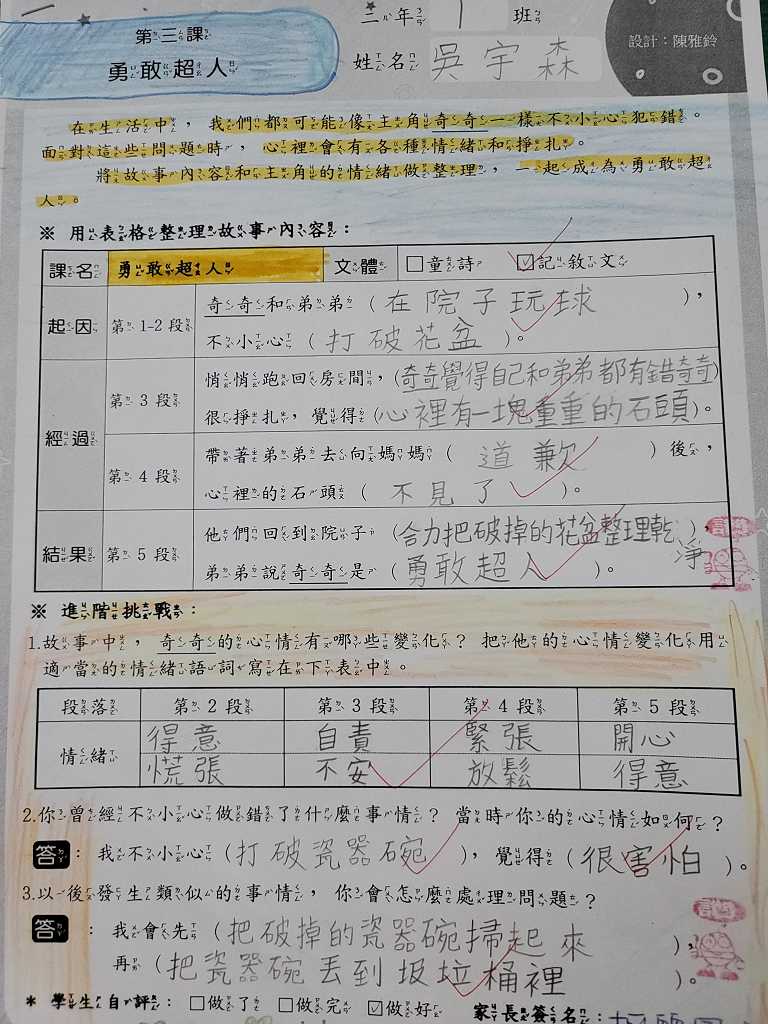 第三課
勇敢超人
二年 1 班
姓名 吳宇森
設計：陳雅鈴
在生活中，我們都可能像主角奇奇一樣不小心犯錯。
面對這些問題時，心裡會有各種情緒和掙扎。
將故事內容和主角的情緒做整理，一起成為勇敢超
人。
※ 用表格整理故事內容：
課名 勇敢超人 文體 □童詩 ☑記敘文
起因 第 1-2 段 奇奇和弟弟（在院子玩球），
不小心（打破花盆）。
經過 第 3 段 悄悄跑回房間，（奇奇覺得自己和弟弟都有錯奇奇）
很掙扎，覺得（心裡有一塊重重的石頭）。
第 4 段 帶著弟弟去向媽媽（道歉）後，
心裡的石頭（不見了）。
結果 第 5 段 他們回到院子（合力把破掉的花盆整理乾淨），
弟弟說奇奇是（勇敢超人）。
※ 進階挑戰：
1.故事中，奇奇的心情有哪些變化？把他的心情變化用
適當的情緒語詞寫在下表中。
段落 第 2 段 第 3 段 第 4 段 第 5 段
情緒 得意 自責 緊張 開心
慌張 不安 放鬆 得意
2.你曾經不小心做錯了什麼事情？當時你的心情如何？
答：我不小心（打破瓷器碗），覺得（很害怕）。
3.以後發生類似的事情，你會怎麼處理問題？
答：我會先（把破掉的瓷器碗掃起來），
再（把瓷器碗丟到圾垃桶裡）。
* 學生自評：□做了 □做完 ☑做好 家長簽名：